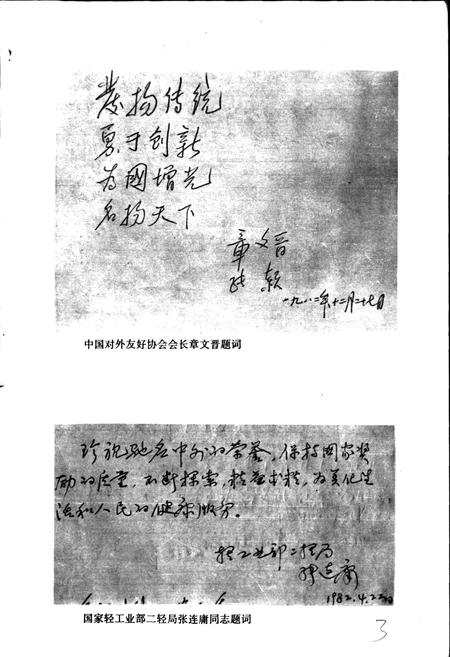 发扬传统
勇于创新
为國增光
名扬天下
章文晋
张颖
一九八二年十二月二十七日
中国对外友好协会会长章文晋题词
珍视驰名中外的荣誉,保持国家奖
励的质量,不断探索,精益求精,为美化生
活和人民的健康服务。
轻工业部二轻局
张连庸
1982.4.22日
国家轻工业部二轻局张连庸同志题词
3